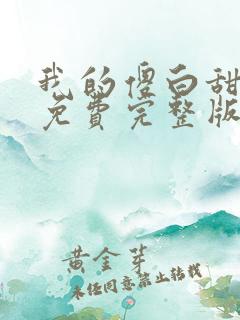 我的傻白甜
免费完整版
黄金芽
未经同意禁止转载